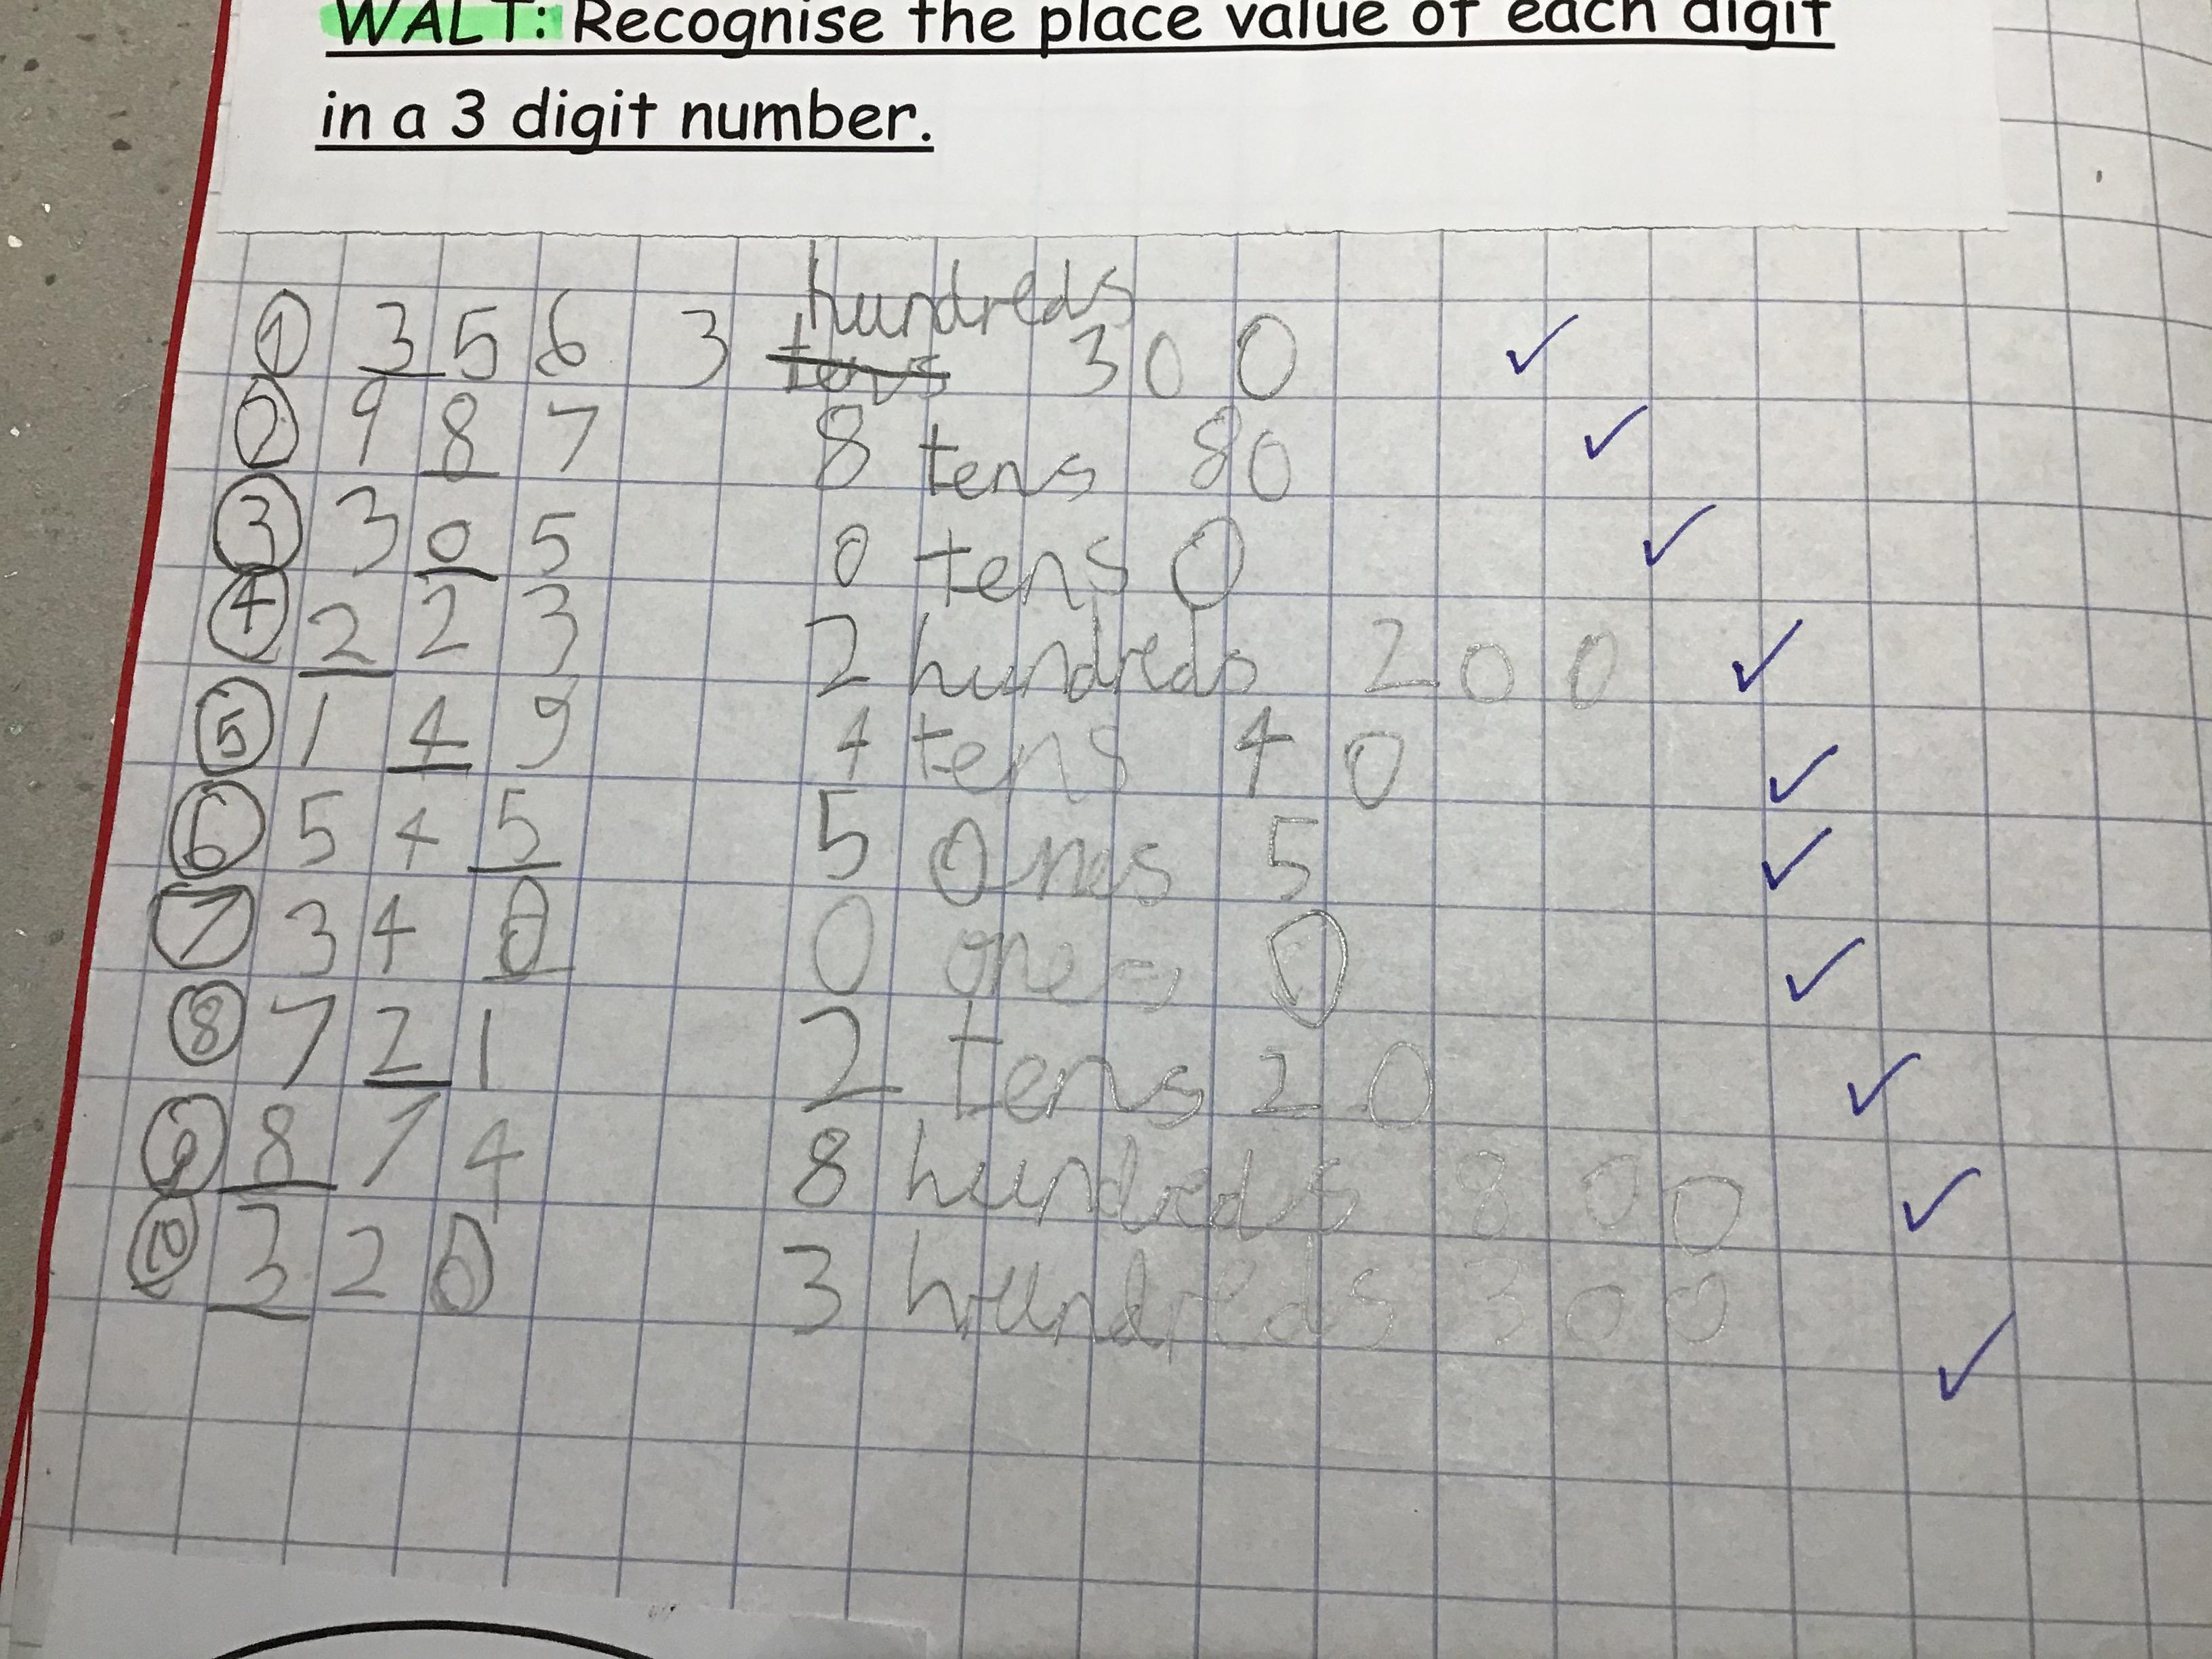 WALT: Recognise the place value of each digit
in a 3 digit number.
hundreds
1 356 3 tens 300
2 987 8 tens 80
3 305 0 tens 0
4 223 2 hundreds 200
5 149 4 tens 40
6 545 5 ones 5
7 340 0 ones 0
8 721 2 tens 20
9 874 8 hundreds 800
10 320 3 hundreds 300